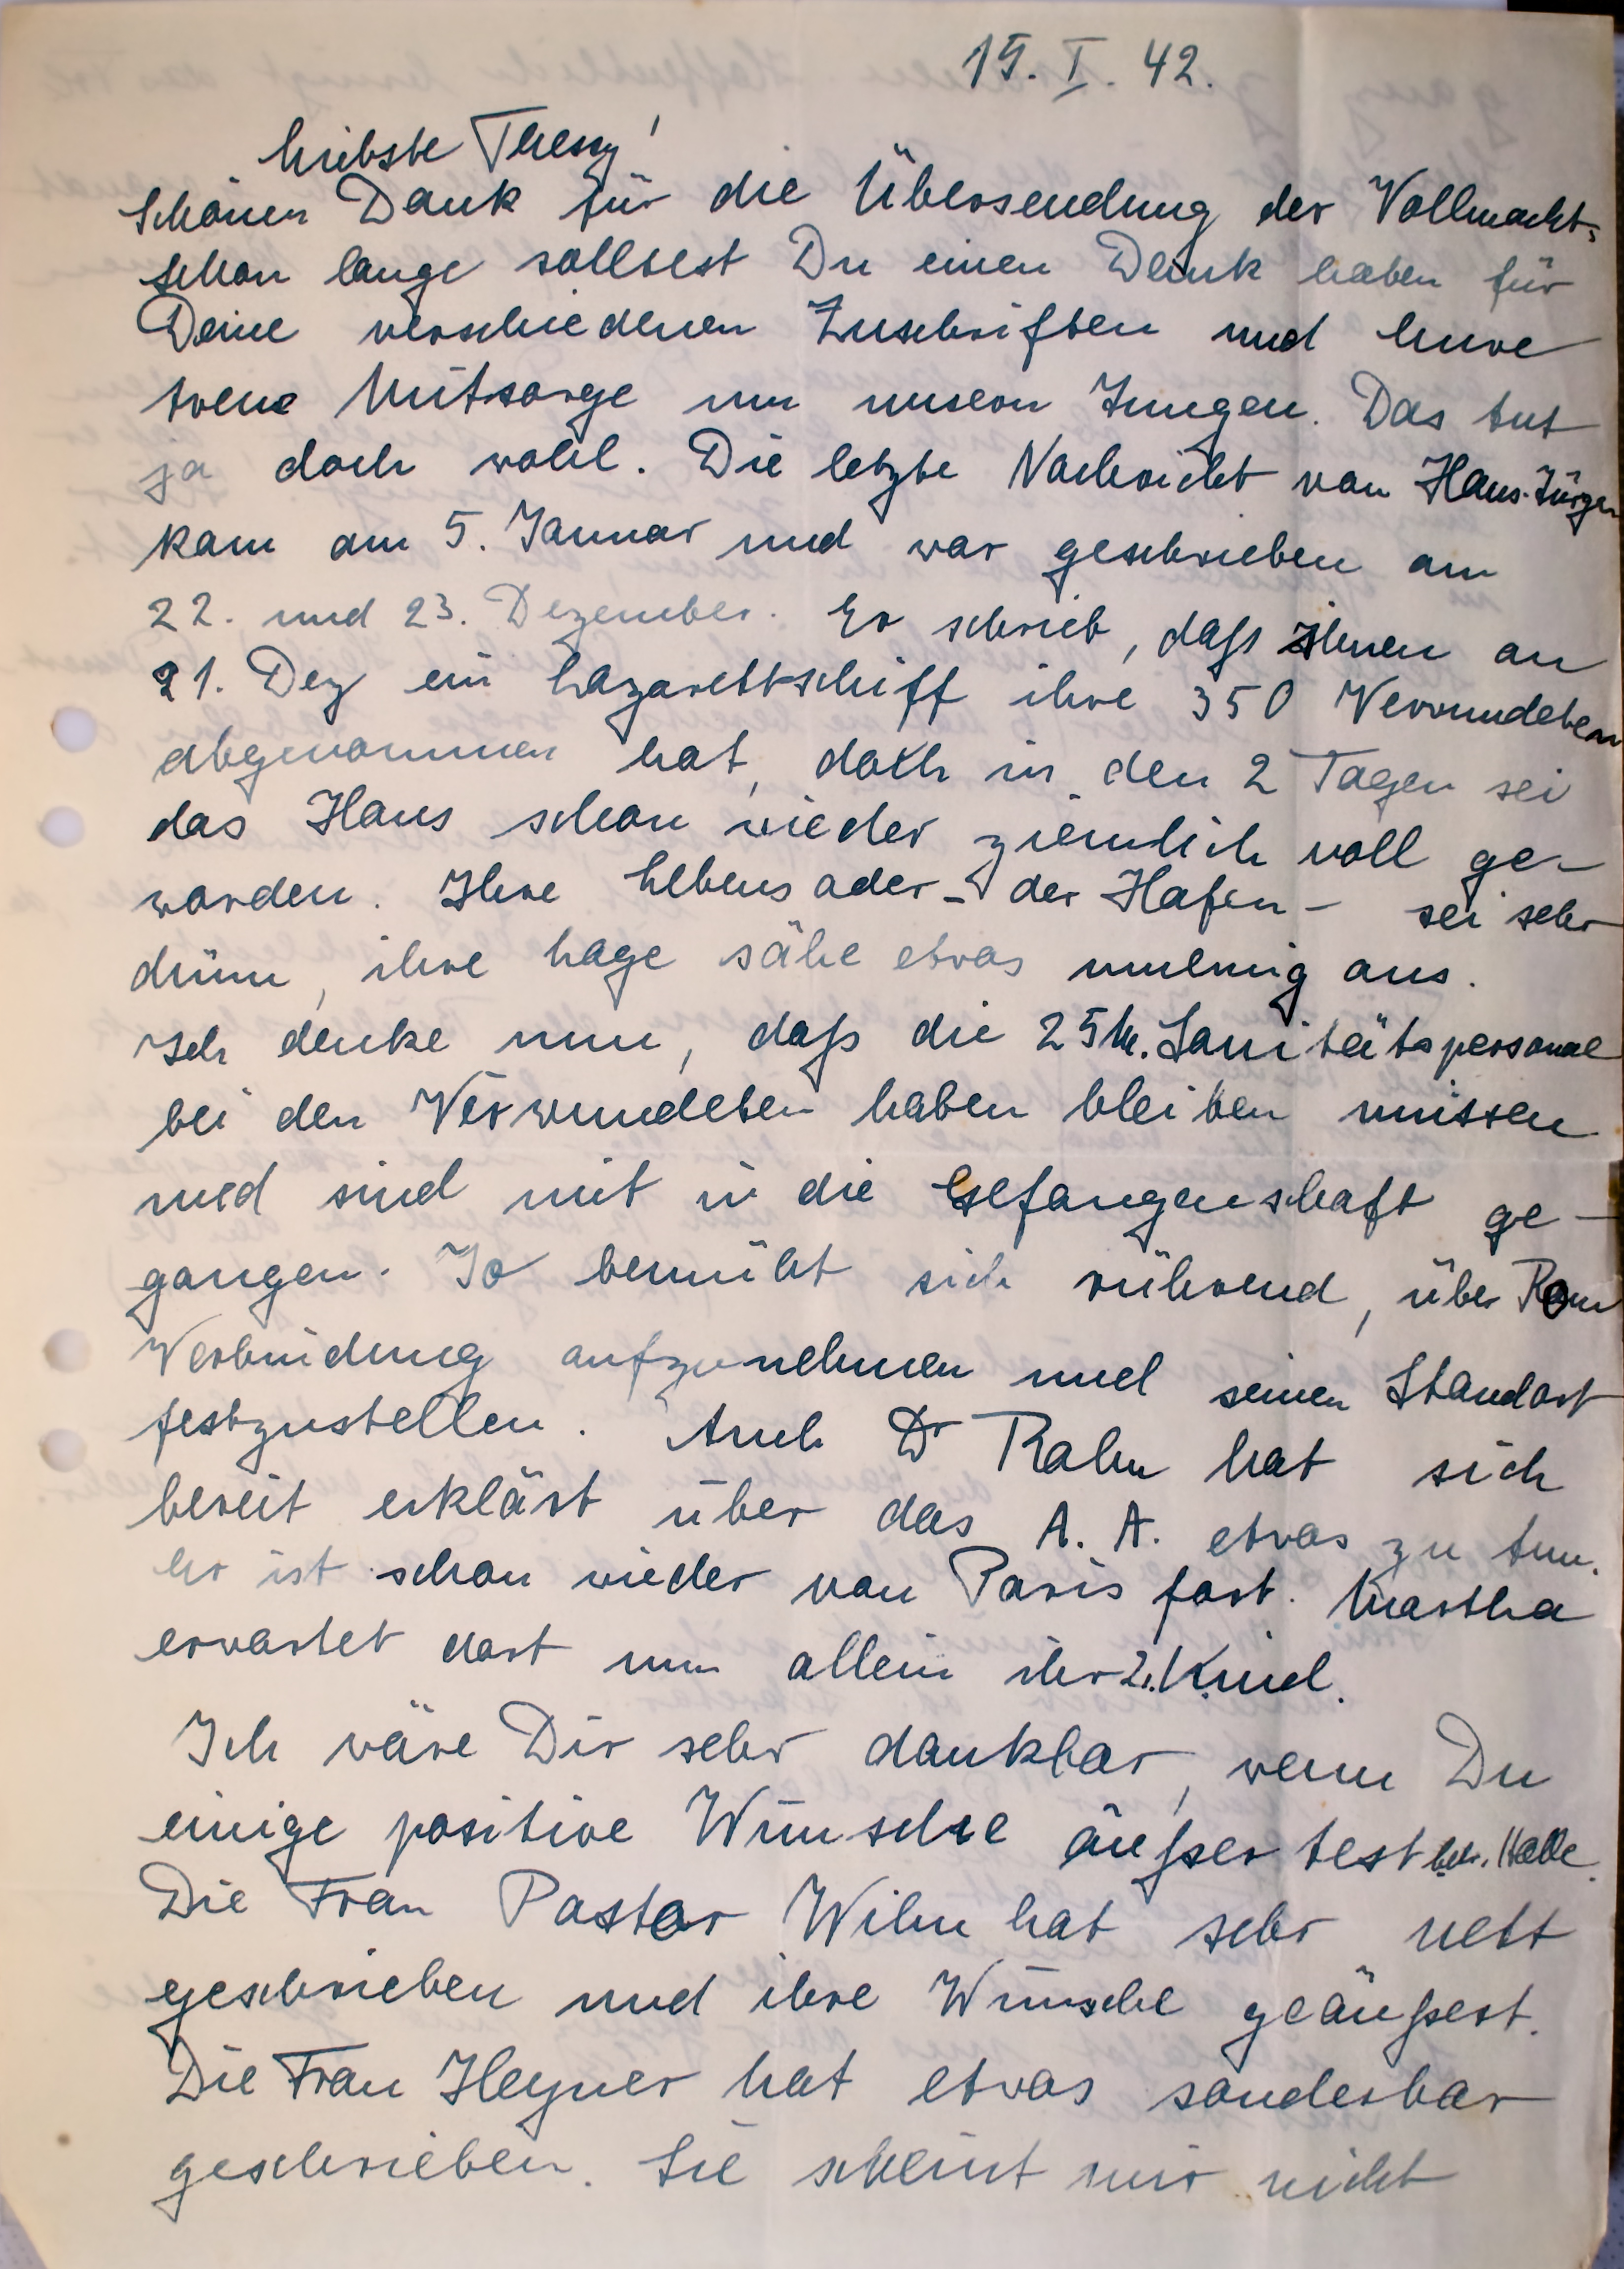 19. I. 42.
Liebste Thessy!
Schönen Dank für die Übersendung der Vollmacht,
schon lange solltest Du einen Dank haben für
Deine verschiedenen Zuschriften und Eure
treue Mitsorge um unsern Jungen. Das tut
ja doch wohl. Die letzte Nachricht von Hans-Jürgen
kam am 5. Januar und war geschrieben am
22. und 23. Dezember. Er schrieb, daß ihnen an
21. Dez ein Lazarettschiff ihre 350 Verwundeten
abgenommen hat, doch in den 2 Tagen sei
das Haus schon wieder ziemlich voll ge-
worden. Ihre Lebensader - der Hafen - sei sehr
dünn, ihre Lage sähe etwas mulmig aus.
Ich denke nun, daß die 25 M. Sanitätspersonal
bei den Verwundeten haben bleiben müssen
und sind mit in die Gefangenschaft ge-
gangen. Jo bemüht sich rührend, über Rom
Verbindung aufzunehmen und seinen Standort
festzustellen. Auch Dr Rahn hat sich
bereit erklärt über das A. A. etwas zu tun.
Er ist schon wieder von Paris fort. Martha
erwartet dort nun allein ihr 2. Kind.
Ich wäre Dir sehr dankbar, wenn Du
einige positive Wünsche äußertest betr. Halle.
Die Frau Pastor Wilm hat sehr nett
geschrieben und ihre Wünsche geäußert.
Die Frau Heyner hat etwas sonderbar
geschrieben. Sie scheint mir nicht